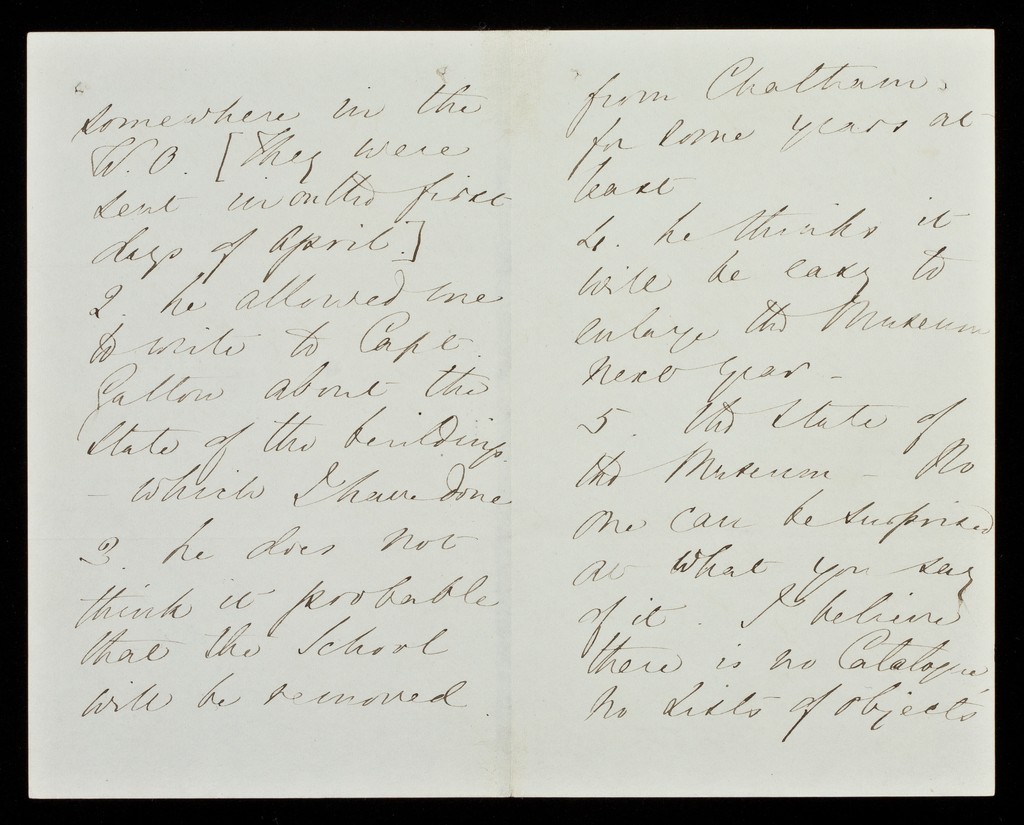 somewhere in the
W.O. [They were
sent in on the first
days of April.]
2. he allowed me
to write to Capt.
Galton about the
state of the buildings
- which I have done
3. he does not
think it probable
that the School
will be removed
from Chatham.
for some years at
least
4. he thinks it
will be easy to
enlarge the Museum
next year -
5. the state of
the Museum - No
one can be surprised
at what you say
of it. I believe
there is no Catalogue,
no Lists of objects